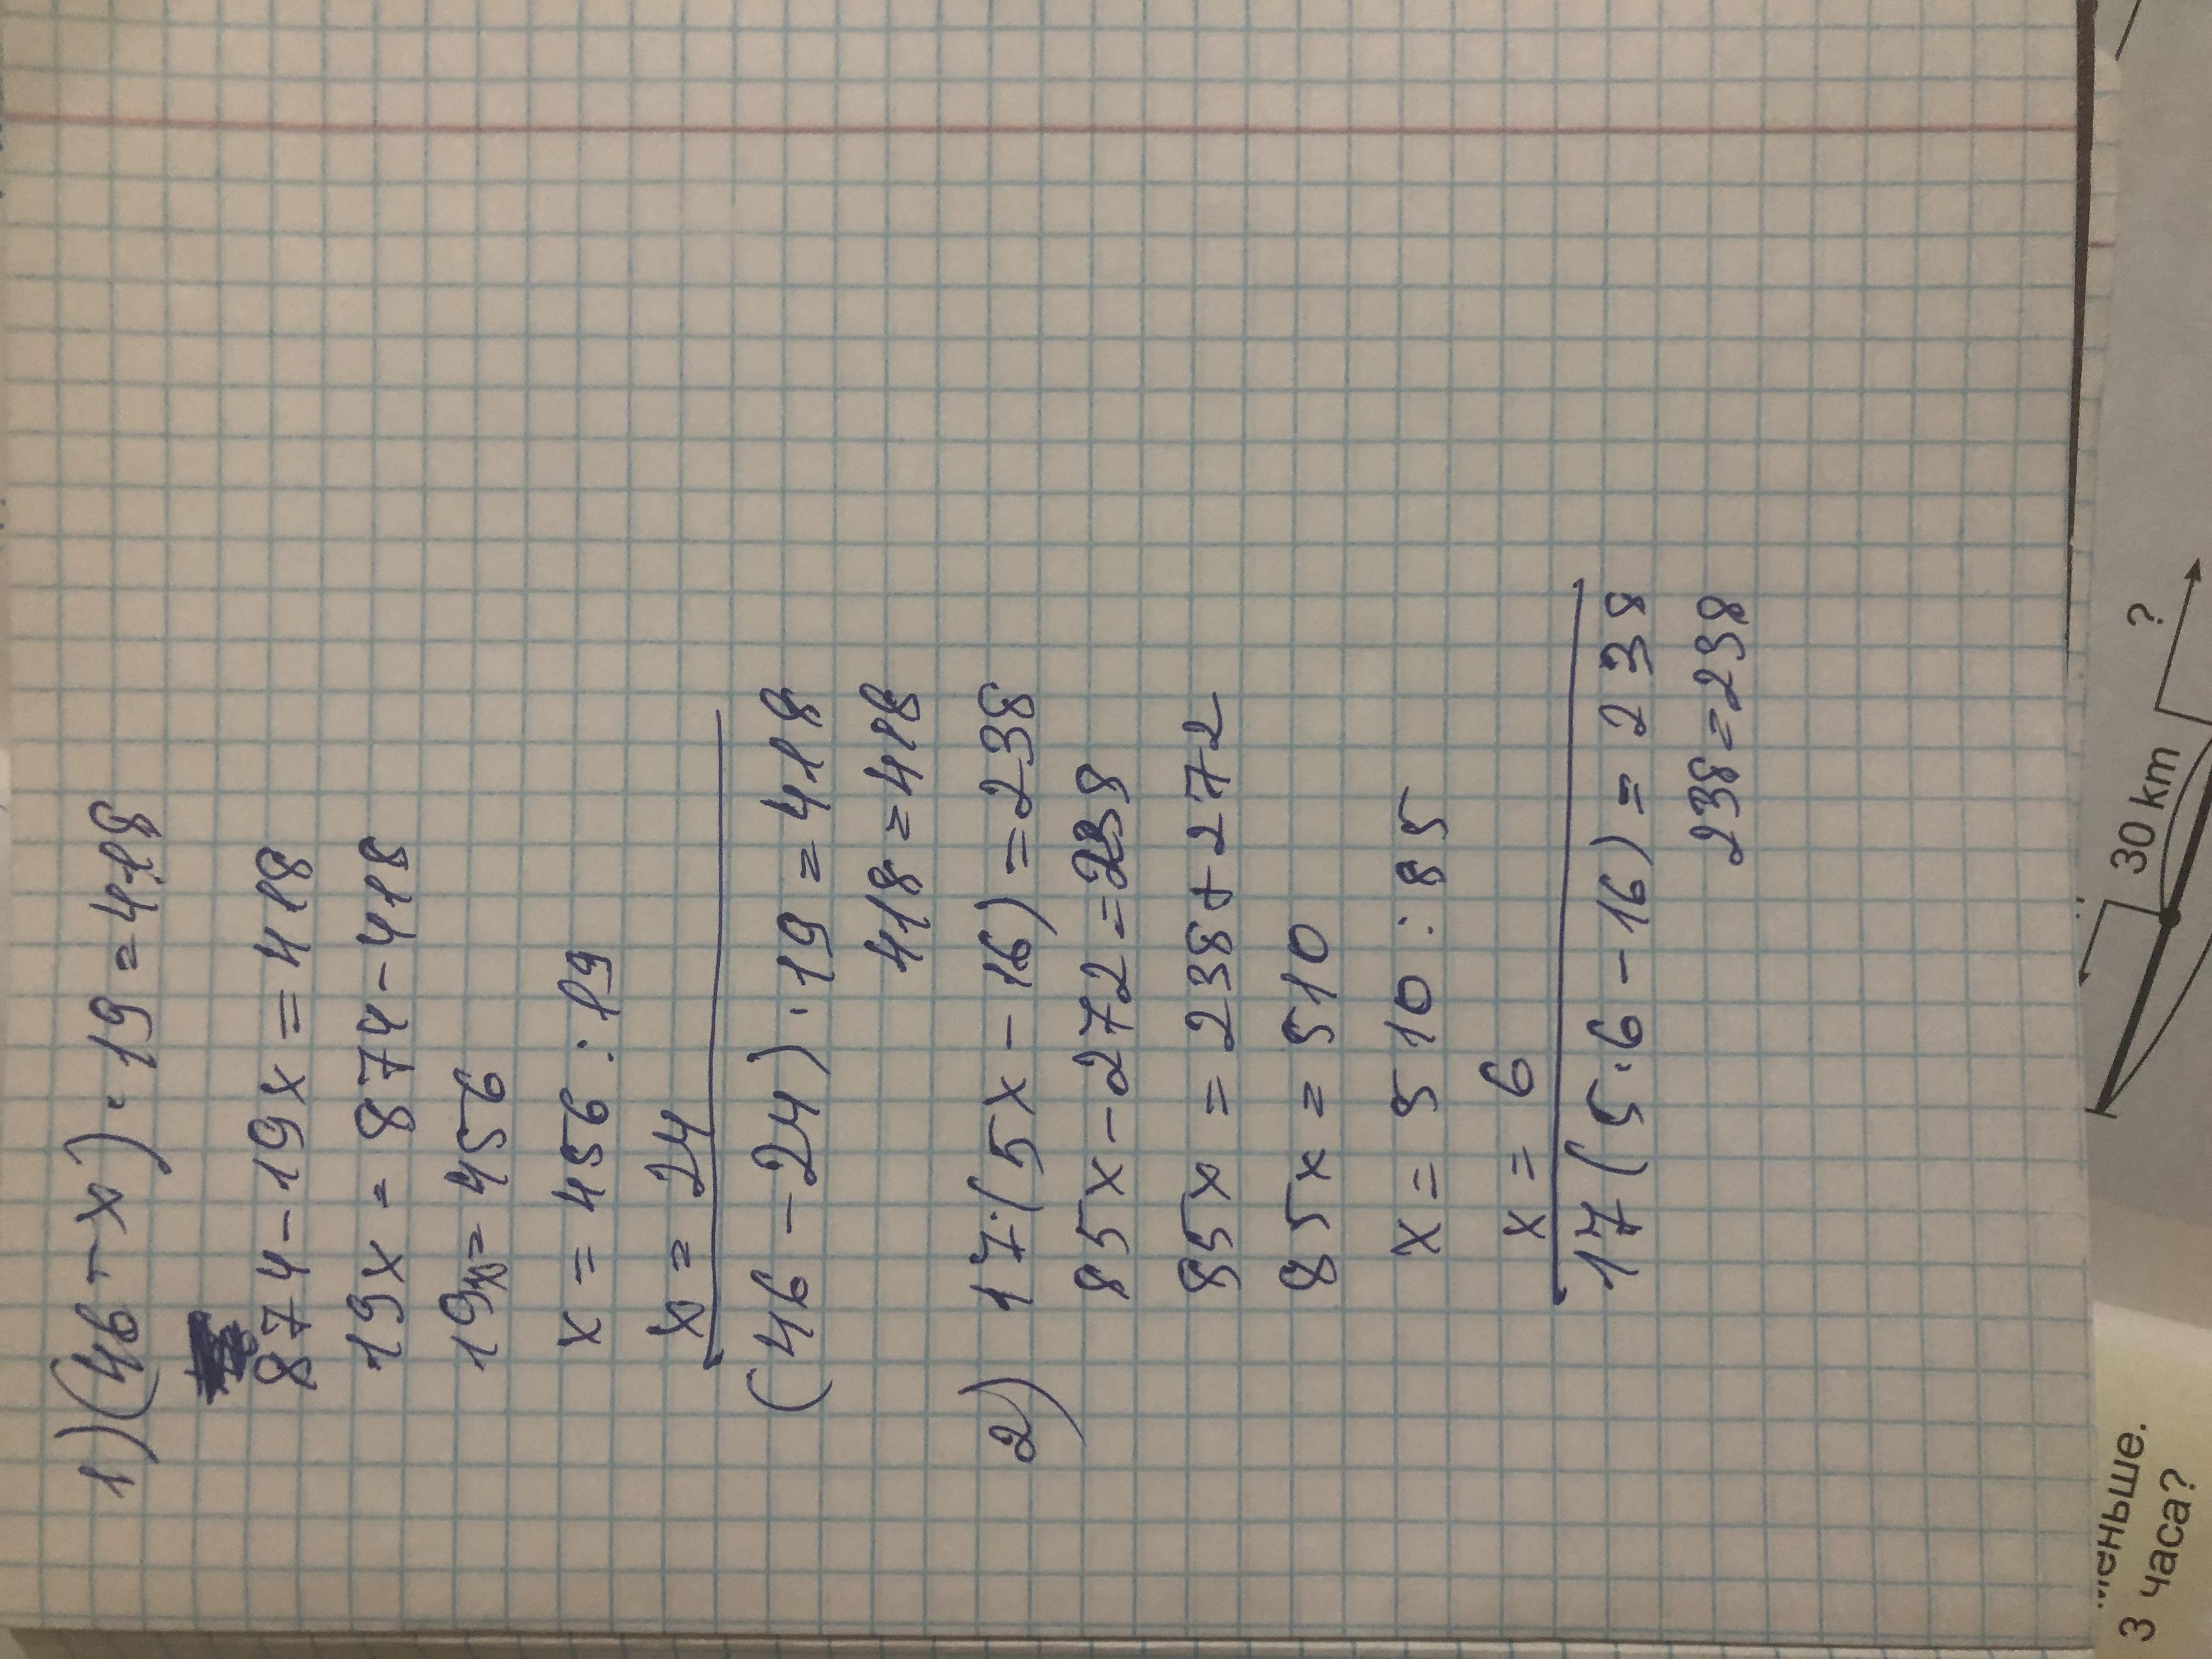 1) (46 - x) · 19 = 418
874 - 19x = 418
19x = 874 - 418
19x = 456
x = 456 : 19
x = 24
(46 - 24) · 19 = 418
418 = 418
2) 17·(5x - 16) = 238
85x - 272 = 238
85x = 238 + 272
85x = 510
x = 510 : 85
x = 6
17(5·6 - 16) = 238
238 = 238
?
30 km
3 часа?